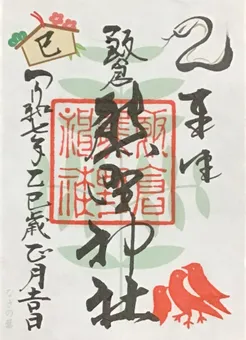 奉拝
飯倉
熊野神社
飯倉熊野神社
令和七年乙巳歳正月吉日
巳
なぎの葉